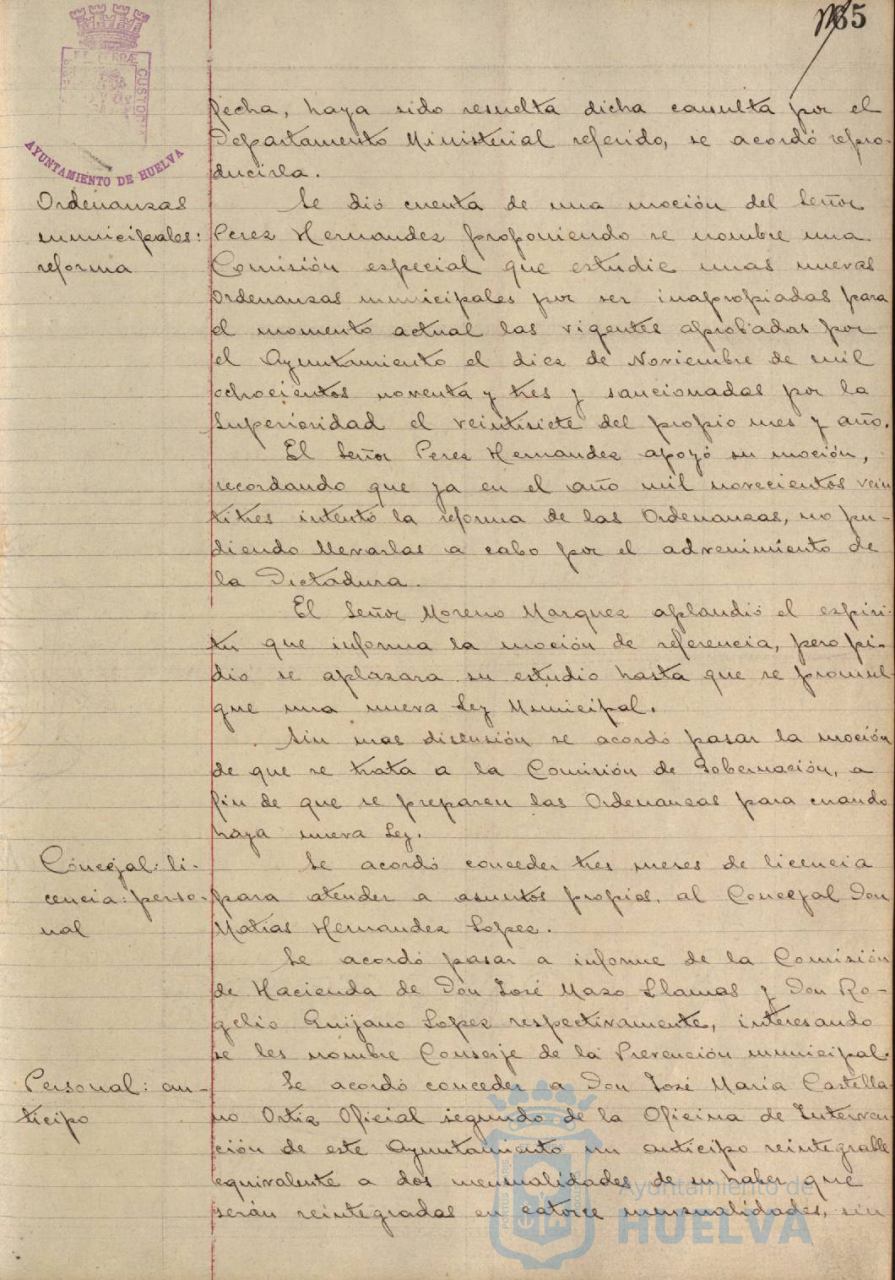 85
AYUNTAMIENTO DE HUELVA
fecha, haya sido resuelta dicha consulta por el
Departamento Ministerial referido, se acordó repro-
ducirla.
Ordenanzas
municipales:
reforma
Se dió cuenta de una moción del Señor
Perez Hernandez proponiendo se nombre una
Comisión especial que estudie unas nuevas
Ordenanzas municipales por ser inapropiadas para
el momento actual las vigentes aprobadas por
el Ayuntamiento el diez de Noviembre de mil
ochocientos noventa y tres y sancionadas por la
Superioridad el veintisiete del propio mes y año.
El Señor Perez Hernandez apoyó su moción,
recordando que ya en el año mil novecientos vein
titres intentó la reforma de las Ordenanzas, no pu-
diendo llevarlas a cabo por el advenimiento de
la Dictadura.
El Señor Moreno Marquez aplaudió el espiri-
tu que informa la moción de referencia, pero pi-
dió se aplazara su estudio hasta que se promul-
gue una nueva Ley Municipal.
Sin mas discusión se acordó pasar la moción
de que se trata a la Comisión de Gobernación, a
fin de que se preparen las Ordenanzas para cuando
haya nueva Ley.
Concejal: li-
cencia: perso-
nal
Se acordó conceder tres meses de licencia
para atender a asuntos propios, al Concejal Don
Matias Hernandez Lopez.
Se acordó pasar a informe de la Comisión
de Hacienda de Don José Mazo Llamas y Don Ro-
gelio Quijano Lopez respectivamente, interesando
se les nombre Conserje de la Prevención municipal.
Personal: an-
ticipo
Se acordó conceder a Don José María Castella-
no Ortiz Oficial segundo de la Oficina de Interven
ción de este Ayuntamiento un anticipo reintegrable
equivalente a dos mensualidades de su haber que
serán reintegradas en catorce mensualidades, sin
Ayuntamiento de
HUELVA